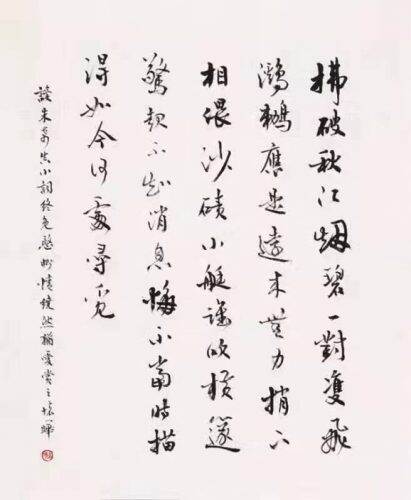 拂破秋江烟碧一對雙飛
鸂鶒應是遠來無力捎下
相偎沙磧小艇誰吹橫篴
驚起不知消息悔不當時描
得如今何處尋覓
讀朱 小詞終 情 然猶愛賞之